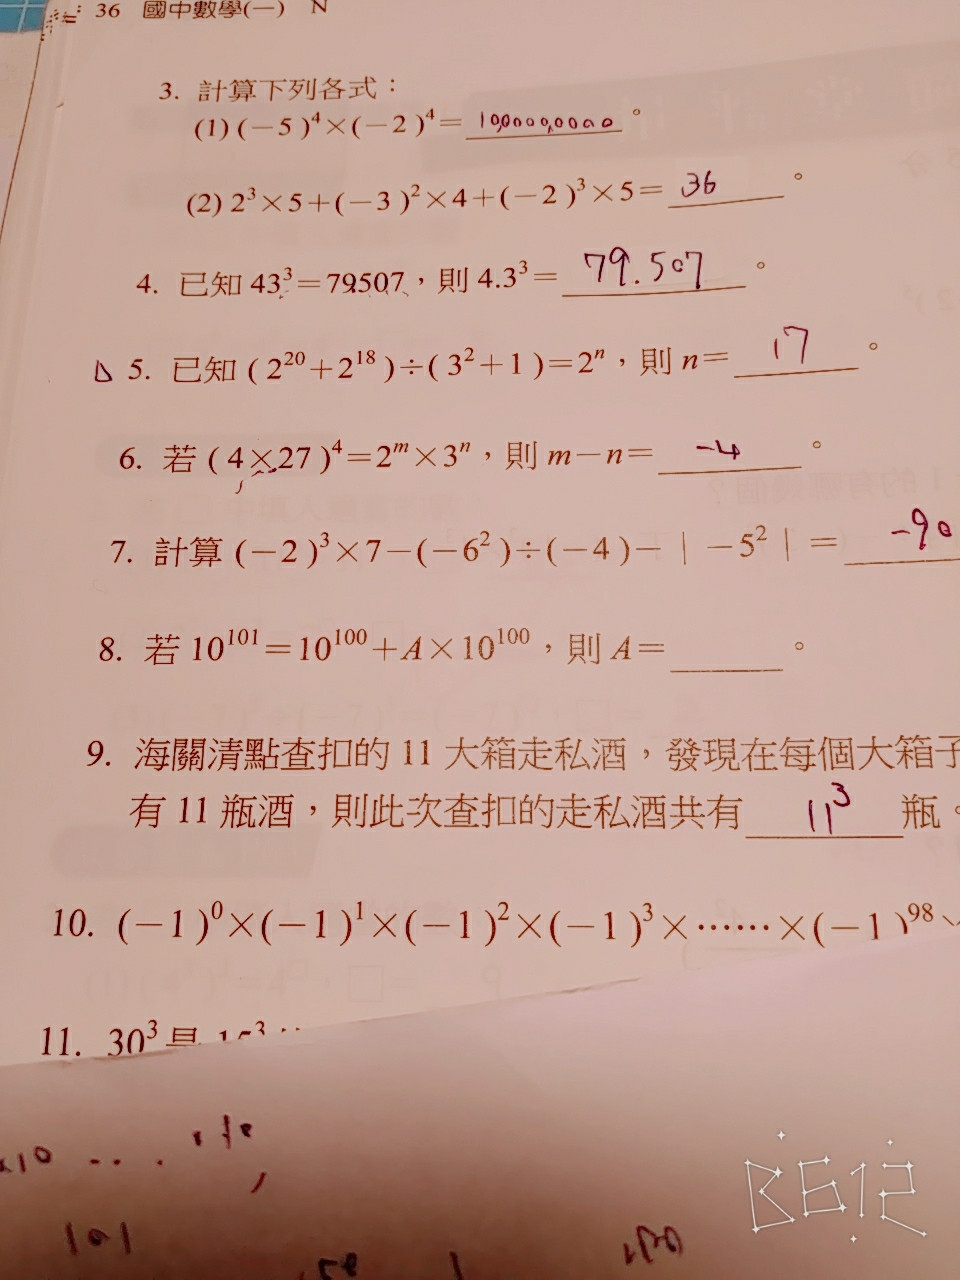 36 國中數學(一) N
3. 計算下列各式：
(1) (−5)⁴×(−2)⁴＝ 。
(2) 2³×5＋(−3)²×4＋(−2)³×5＝ 36 。
4. 已知 43³＝79507，則 4.3³＝ 79.507 。
5. 已知 (2²⁰＋2¹⁸)÷(3²＋1)＝2ⁿ，則 n＝ 17 。
6. 若 (4×27)⁴＝2ᵐ×3ⁿ，則 m−n＝ −4 。
7. 計算 (−2)³×7−(−6²)÷(−4)−｜−5²｜＝ −90
8. 若 10¹⁰¹＝10¹⁰⁰＋A×10¹⁰⁰，則 A＝ 。
9. 海關清點查扣的 11 大箱走私酒，發現在每個大箱子
有 11 瓶酒，則此次查扣的走私酒共有 11³ 瓶。
10. (−1)⁰×(−1)¹×(−1)²×(−1)³×……×(−1)⁹⁸
11. 30³ 是 15³
101
B612